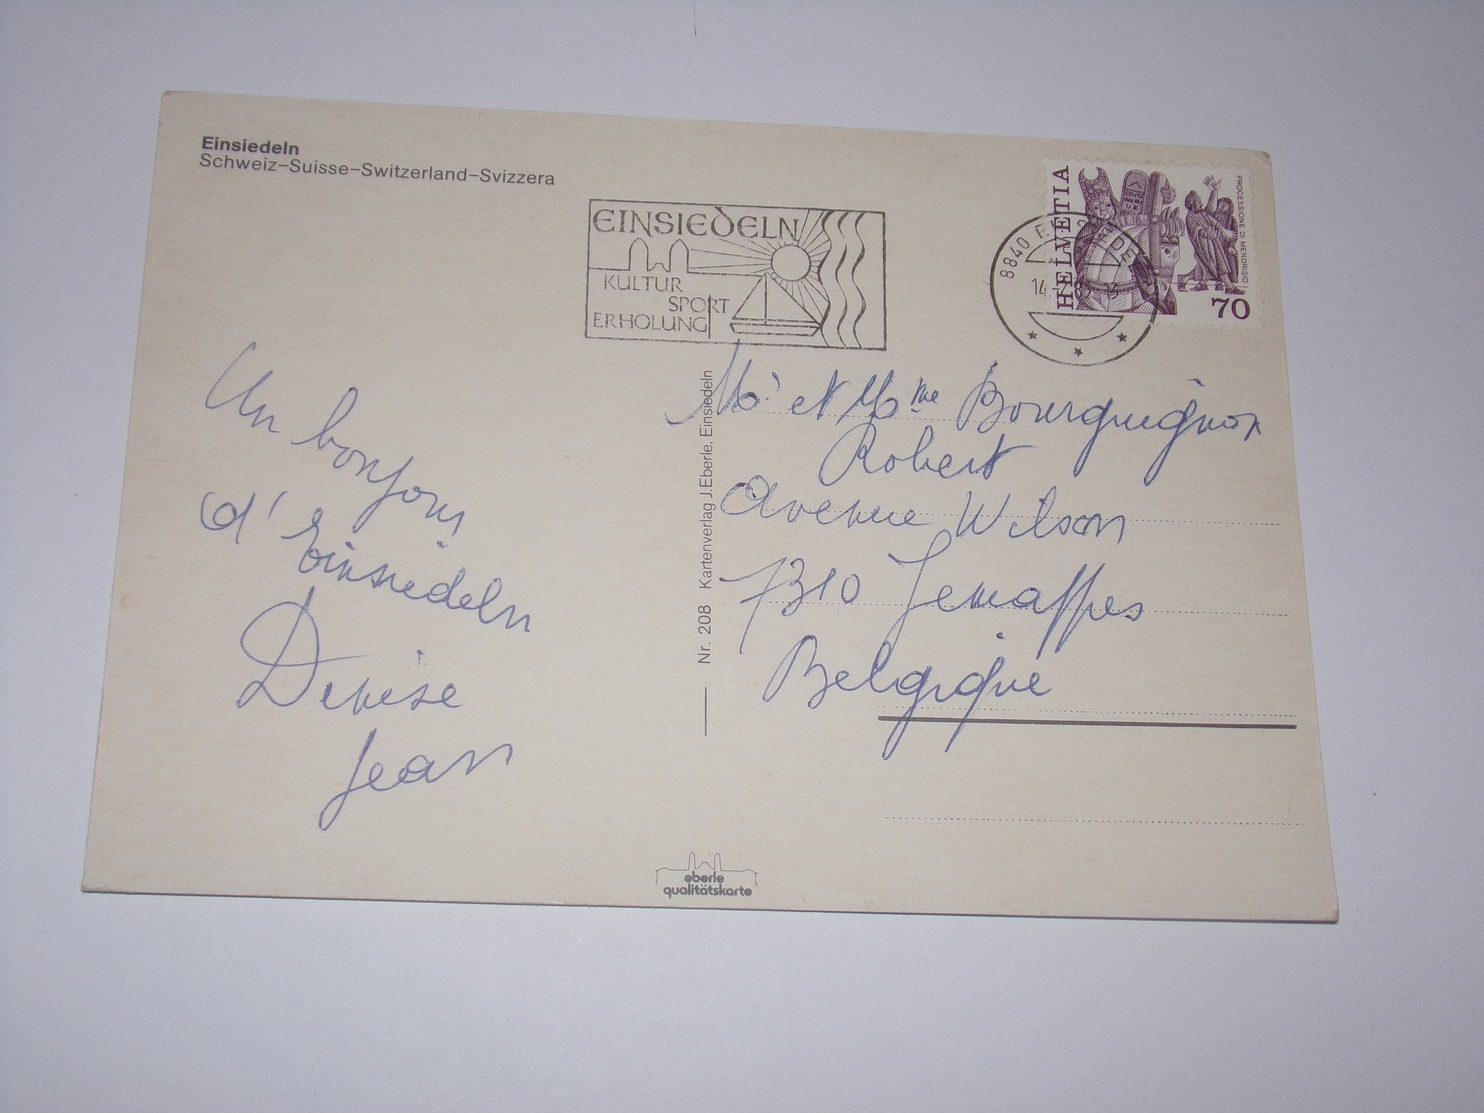 Einsiedeln
Schweiz–Suisse–Switzerland–Svizzera
EINSIEDELN
KULTUR
SPORT
ERHOLUNG
HELVETIA
PROCESSIONE DI MENDRISIO
70
8840
14.
Un bonjour
d'Einsiedeln
Denise
Jean
Nr. 208 Kartenverlag J. Eberle, Einsiedeln
Mr et Mme Bourguignon
Robert
Avenue Wilson
7310 Jemappes
Belgique
eberle
qualitätskarte